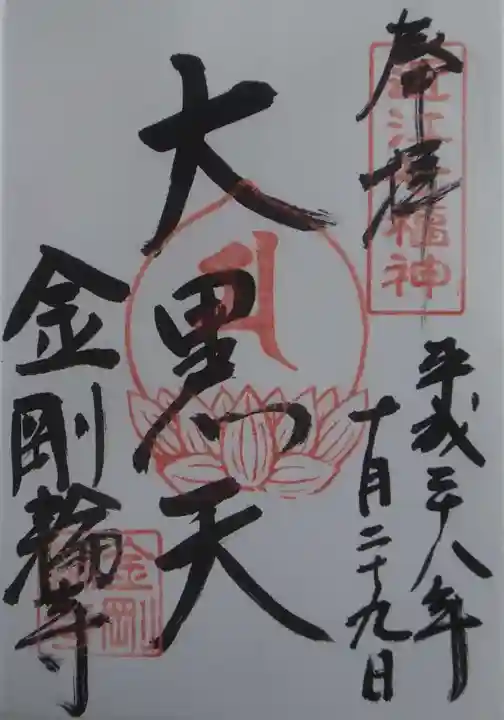 奉拝
近江七福神
平成二十八年
十月二十九日
大黒天
金剛輪寺
金剛